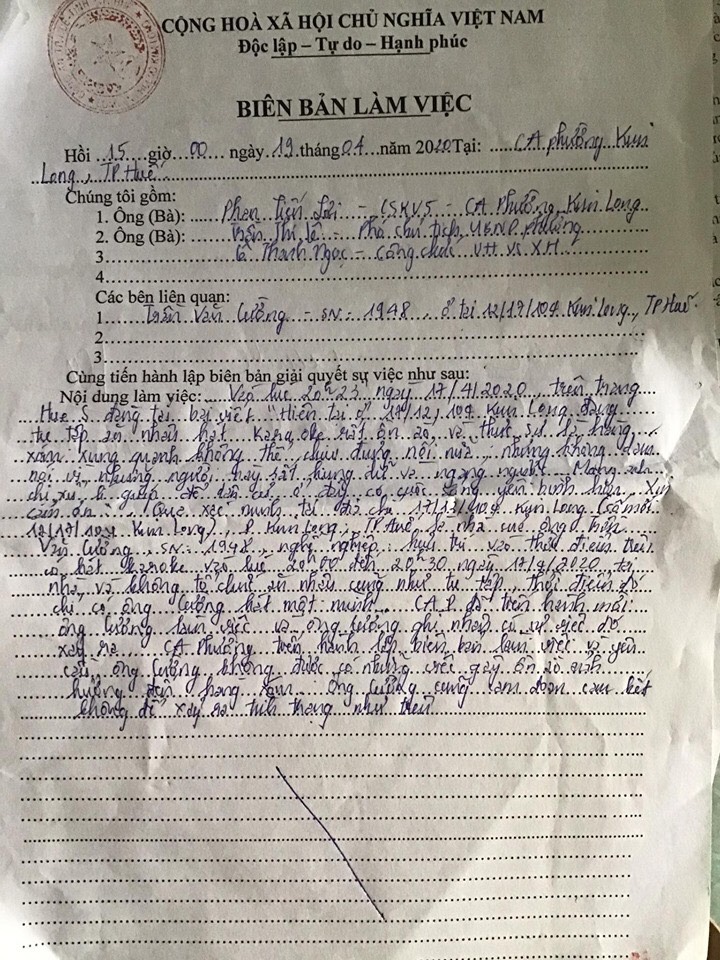 CỘNG HOÀ XÃ HỘI CHỦ NGHĨA VIỆT NAM
Độc lập – Tự do – Hạnh phúc
BIÊN BẢN LÀM VIỆC
Hồi ...15....giờ...00.... ngày .19.tháng.04...năm 2020 Tại: .....CA phường Kim
Long, TP Huế
Chúng tôi gồm:
1. Ông (Bà): ..... Phan Tiến - CSKV5 - CA Phường Kim Long
2. Ông (Bà): Trần Thị Lê - Phó chủ tịch UBND phường
3 Lê Thanh Ngọc - Công chức VH và XH
4
Các bên liên quan:
1 Trần Văn Cường - SN: 1948, ở tại 12/17/104 Kim Long, TP Huế
2
3
Cùng tiến hành lập biên bản giải quyết sự việc như sau:
Nội dung làm việc: Vào lúc 20h23 ngày 17/4/2020, trên trang
Hue S đăng tải bài viết "Hiện tại ở 17/12, 104 Kim Long đang
tụ tập ăn nhậu hát karaoke rất ồn ào, và thực sự là hàng
xóm xung quanh không thể chịu đựng nổi nữa, nhưng không dám
nói vì những người này rất hung dữ và ngang ngược. Mong anh
chị xử lí giúp để dân cư ở đây có cuộc sống yên bình hơn. Xin
cảm ơn". Qua xác minh tại địa chỉ 17/12/104 Kim Long (số mới
12/17/104 Kim Long), P. Kim Long, TP Huế là nhà của ông Trần
Văn Cường, SN: 1948, nghề nghiệp: hưu trí vào thời điểm trên
có hát karaoke vào lúc 20h00 đến 20h30 ngày 17/4/2020 tại
nhà và không tổ chức ăn nhậu cũng như tụ tập, thời điểm đó
chỉ có ông Cường hát một mình. CA.P đã tiến hành mời
ông Cường làm việc và ông Cường ghi nhận có sự việc đó
xảy ra. CA Phường tiến hành lập biên bản làm việc và yêu
cầu ông Cường không được có những việc gây ồn ào ảnh
hưởng đến hàng xóm. Ông Cường cũng cam đoan cam kết
không để xảy ra tình trạng như trên